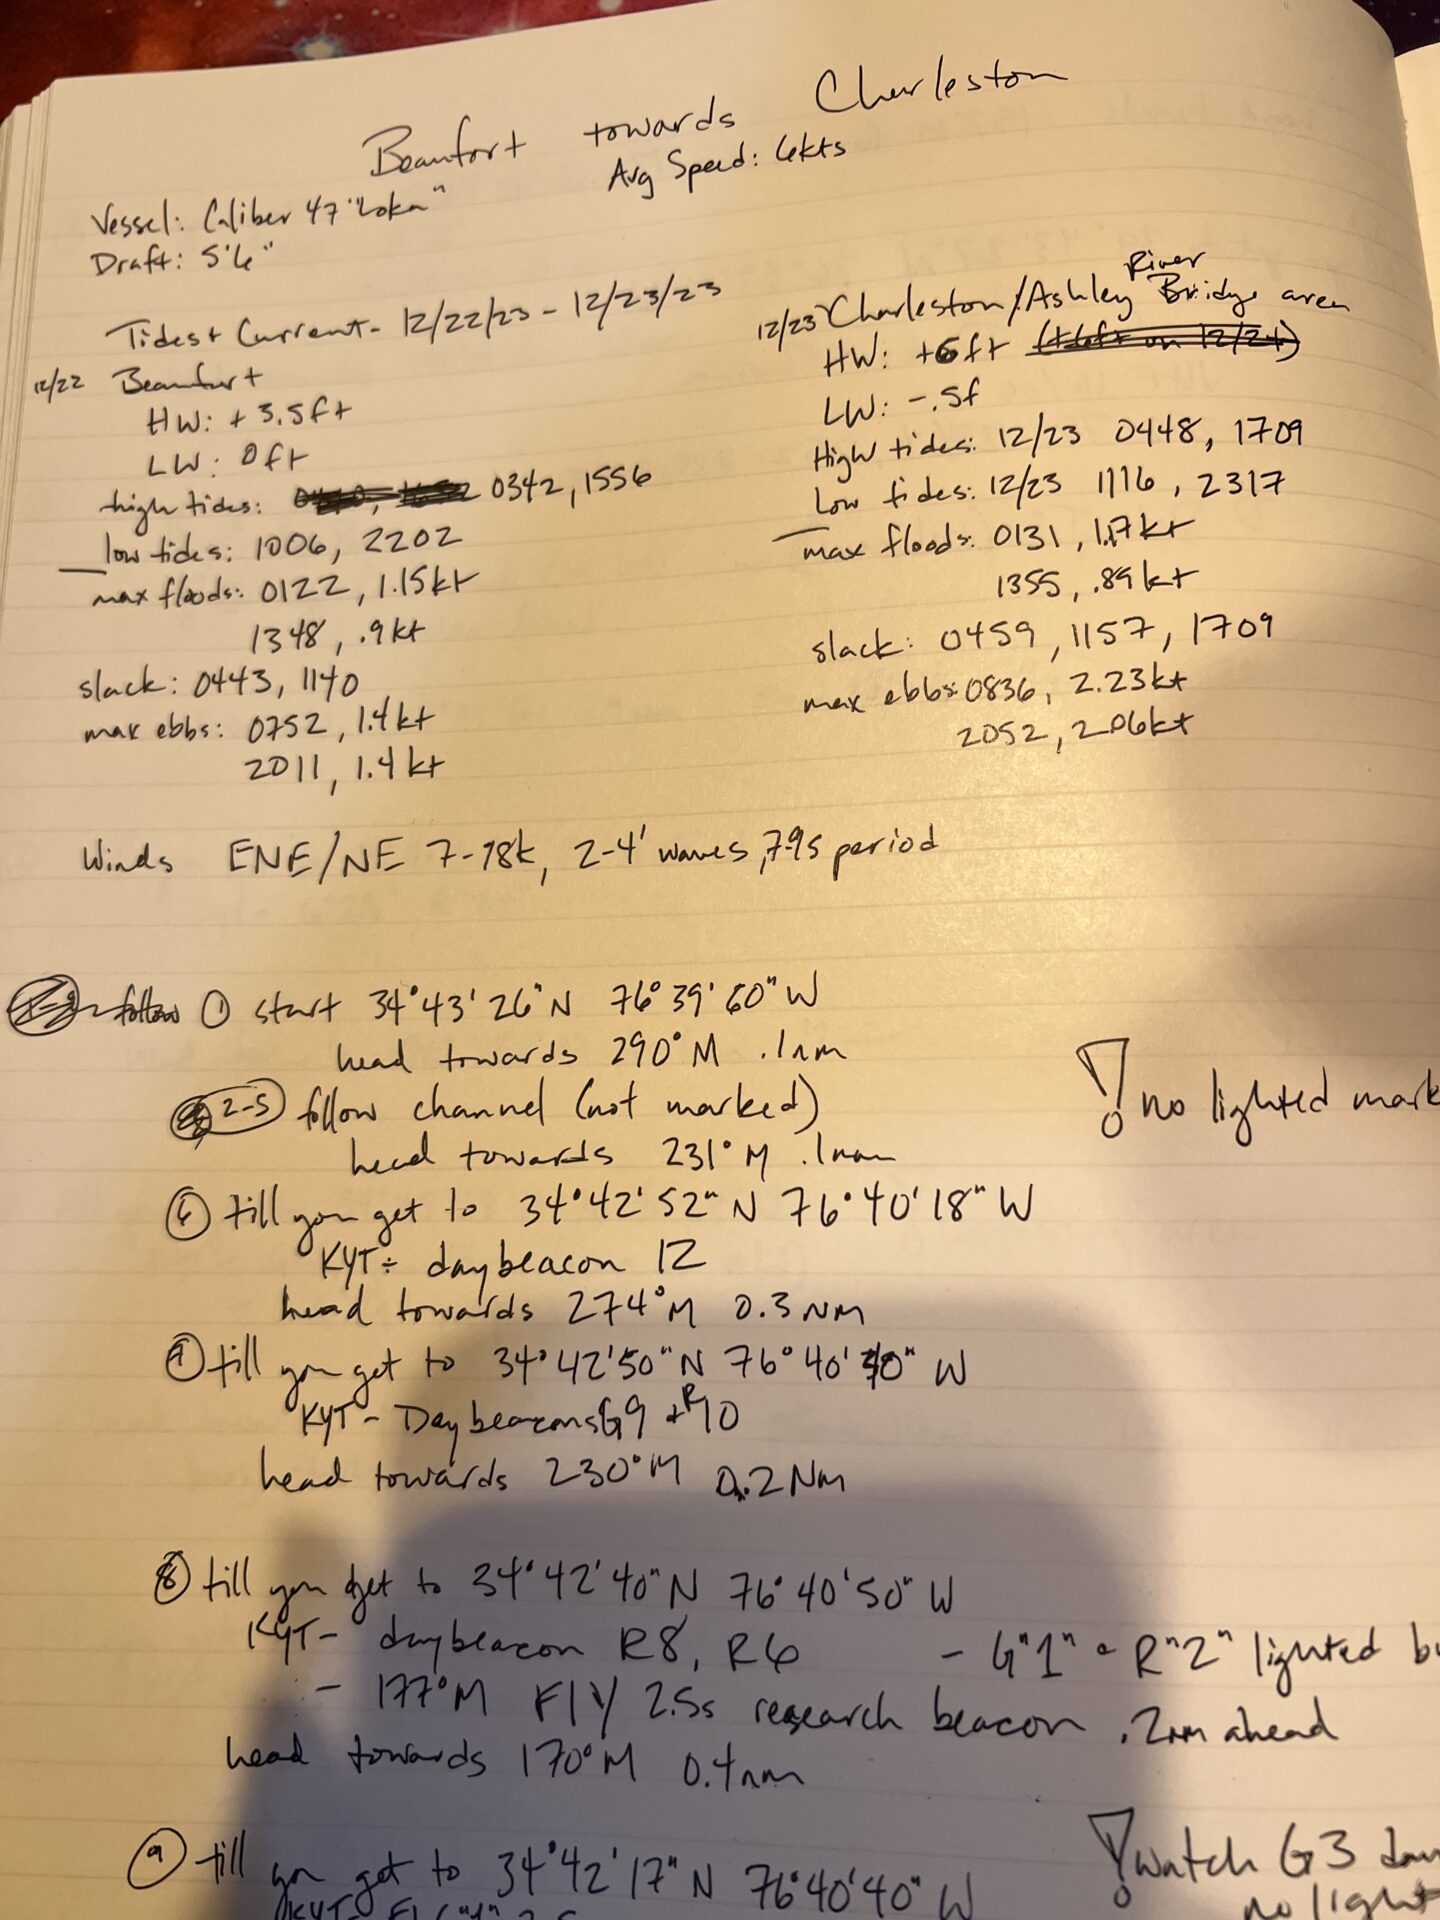 Beaufort towards Charleston
Avg Speed: 6kts
Vessel: Caliber 47 "Loka"
Draft: 5'6"
Tides + Current - 12/22/23 - 12/23/23
12/22 Beaufort
HW: + 3.5ft
LW: 0ft
high tides: 0342, 1556
low tides: 1006, 2202
max floods: 0122, 1.15kt
1348, .9kt
slack: 0443, 1140
max ebbs: 0752, 1.4kt
2011, 1.4kt
12/23 Charleston/Ashley River Bridge area
HW: +6ft
LW: -.5f
High tides: 12/23 0448, 1709
Low tides: 12/23 1116, 2317
max floods: 0131, 1.17kt
1355, .89kt
slack: 0459, 1157, 1709
max ebbs: 0836, 2.23kt
2052, 2.06kt
Winds ENE/NE 7-18k, 2-4' waves, 7-9s period
follow ① start 34°43'26"N 76°39'60"W
head towards 290°M .1nm
2-5 follow channel (not marked)
! no lighted mark
head towards 231°M .1nm
⑥ till you get to 34°42'52"N 76°40'18"W
KYT - daybeacon 12
head towards 274°M 0.3NM
till you get to 34°42'50"N 76°40' W
KYT - Daybeacons G9 + R10
head towards 230°M 0.2NM
⑧ till you get to 34°42'40"N 76°40'50"W
KYT - daybeacon R8, R6 - G"1" & R"2" lighted
- 177°M Fl Y 2.5s research beacon .2nm ahead
head towards 170°M 0.4nm
⑨ till you get to 34°42'17"N 76°40'40"W
! watch G3
no light
KYT-